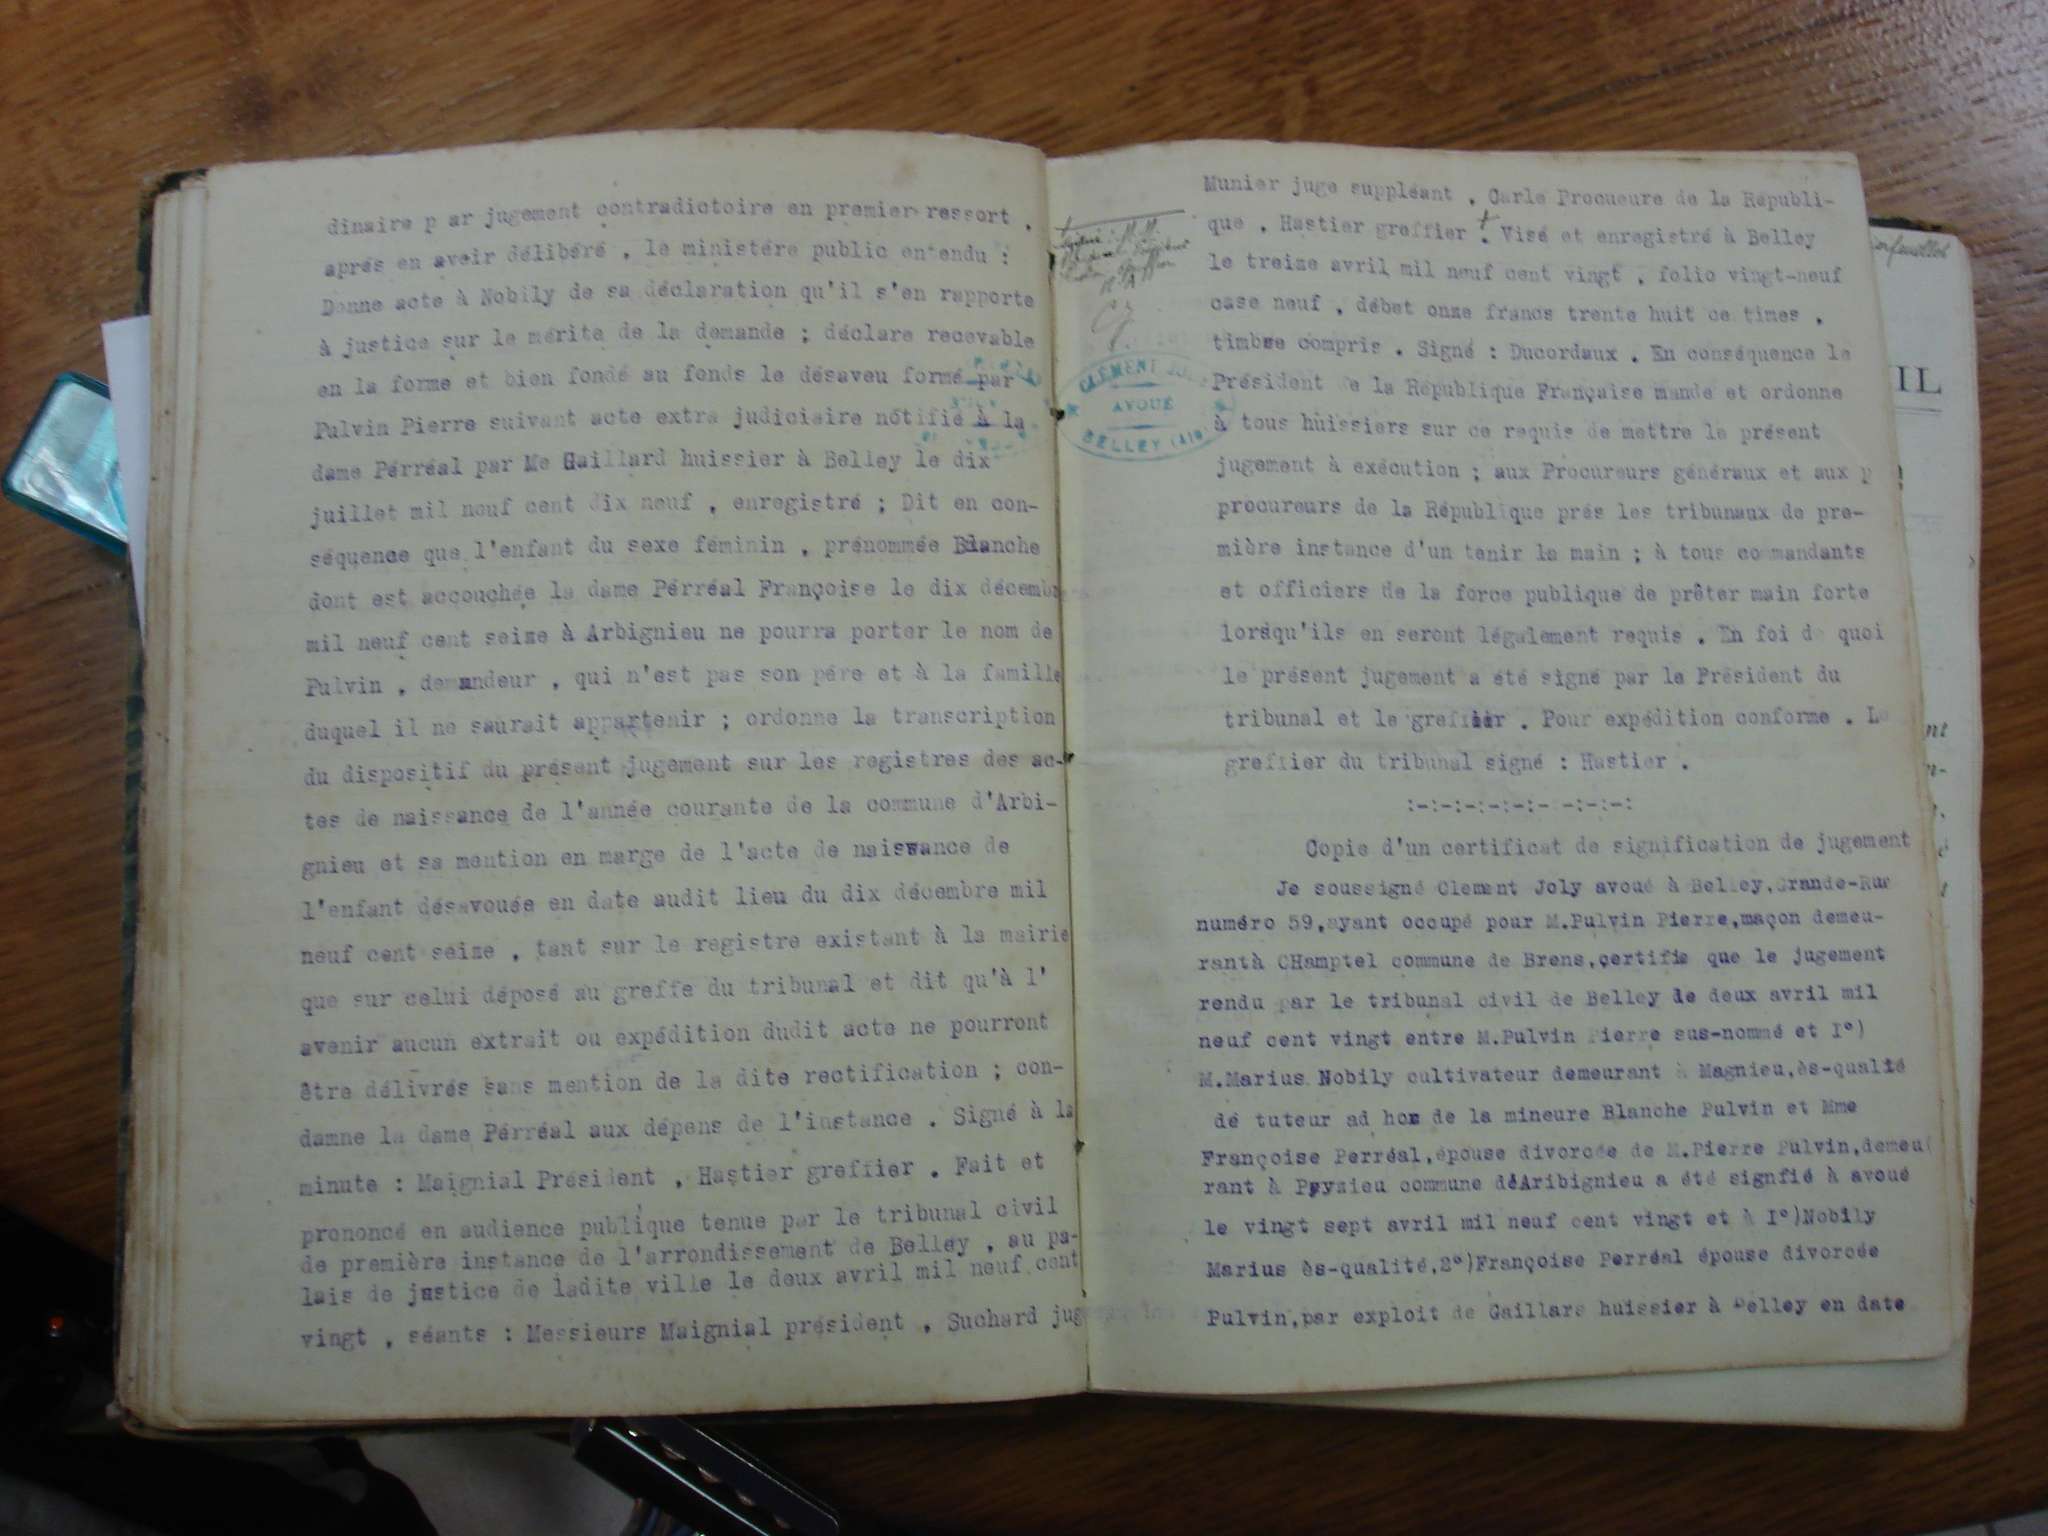 dinaire p ar jugement contradictoire en premier ressort .
aprés en avoir délibéré , le ministére public entendu :
Donne acte à Nobily de sa déclaration qu'il s'en rapporte
à justice sur le mérite de la demande ; déclare recevable
en la forme et bien fondé au fonds le désaveu formé par
Pulvin Pierre suivant acte extra judiciaire nótifié à la
dame Pérréal par Me Gaillard huissier à Belley le dix
juillet mil neuf cent dix neuf , enregistré ; Dit en con-
séquence que l'enfant du sexe féminin , prénommée Blanche
dont est accouchée la dame Pérréal Françoise le dix décembre
mil neuf cent seize à Arbignieu ne pourra porter le nom de
Pulvin , demandeur , qui n'est pas son pére et à la famille
duquel il ne saurait appartenir ; ordonne la transcription
du dispositif du présent jugement sur les registres des ac-
tes de naissance de l'année courante de la commune d'Arbi-
gnieu et sa mention en marge de l'acte de naissance de
l'enfant désavouée en date audit lieu du dix décembre mil
neuf cent seize , tant sur le registre existant à la mairie
que sur celui déposé au greffe du tribunal et dit qu'à l'
avenir aucun extrait ou expédition dudit acte ne pourront
être délivrés sans mention de la dite rectification ; con-
damne la dame Pérréal aux dépens de l'instance . Signé à la
minute : Maignial Président , Hastier greffier . Fait et
prononcé en audience publique tenue par le tribunal civil
de première instance de l'arrondissement de Belley , au pa-
lais de justice de ladite ville le deux avril mil neuf cent
vingt , séants : Messieurs Maignial président , Suchard juge
Munier juge suppléant , Carle Procureure de la Républi-
que , Hastier greffier . Visé et enregistré à Belley
le treize avril mil neuf cent vingt , folio vingt-neuf
case neuf , débet onze francs trente huit ce times ,
timbre compris . Signé : Ducordaux . En conséquence le
Président de la République Française mande et ordonne
à tous huissiers sur ce requis de mettre le présent
jugement à exécution ; aux Procureurs généraux et aux p
procureurs de la République prés les tribunaux de pre-
mière instance d'un tenir la main ; à tous commandants
et officiers de la force publique de prêter main forte
lorsqu'ils en seront légalement requis . En foi de quoi
le présent jugement a été signé par le Président du
tribunal et le greffier . Pour expédition conforme . Le
greffier du tribunal signé : Hastier .
:-:-:-:-:-:- -:-:-:
CLEMENT
AVOUÉ
BELLEY (AIN)
Copie d'un certificat de signification de jugement
Je soussigné Clement Joly avoué à Belley,Grande-Rue
numéro 59,ayant occupé pour M.Pulvin Pierre,maçon demeu-
rantà CHamptel commune de Brens,certifie que le jugement
rendu par le tribunal civil de Belley le deux avril mil
neuf cent vingt entre M.Pulvin Pierre sus-nommé et I°)
M.Marius Nobily cultivateur demeurant à Magnieu,ès-qualité
dé tuteur ad hoc de la mineure Blanche Pulvin et Mme
Françoise Perréal,épouse divorcée de M.Pierre Pulvin,demeu
rant à Peyzieu commune d'Aribignieu a été signfié à avoué
le vingt sept avril mil neuf cent vingt et à I°)Nobily
Marius ès-qualité,2°)Françoise Perréal épouse divorcée
Pulvin,par exploit de Gaillars huissier à Belley en date
IL
nt
n-